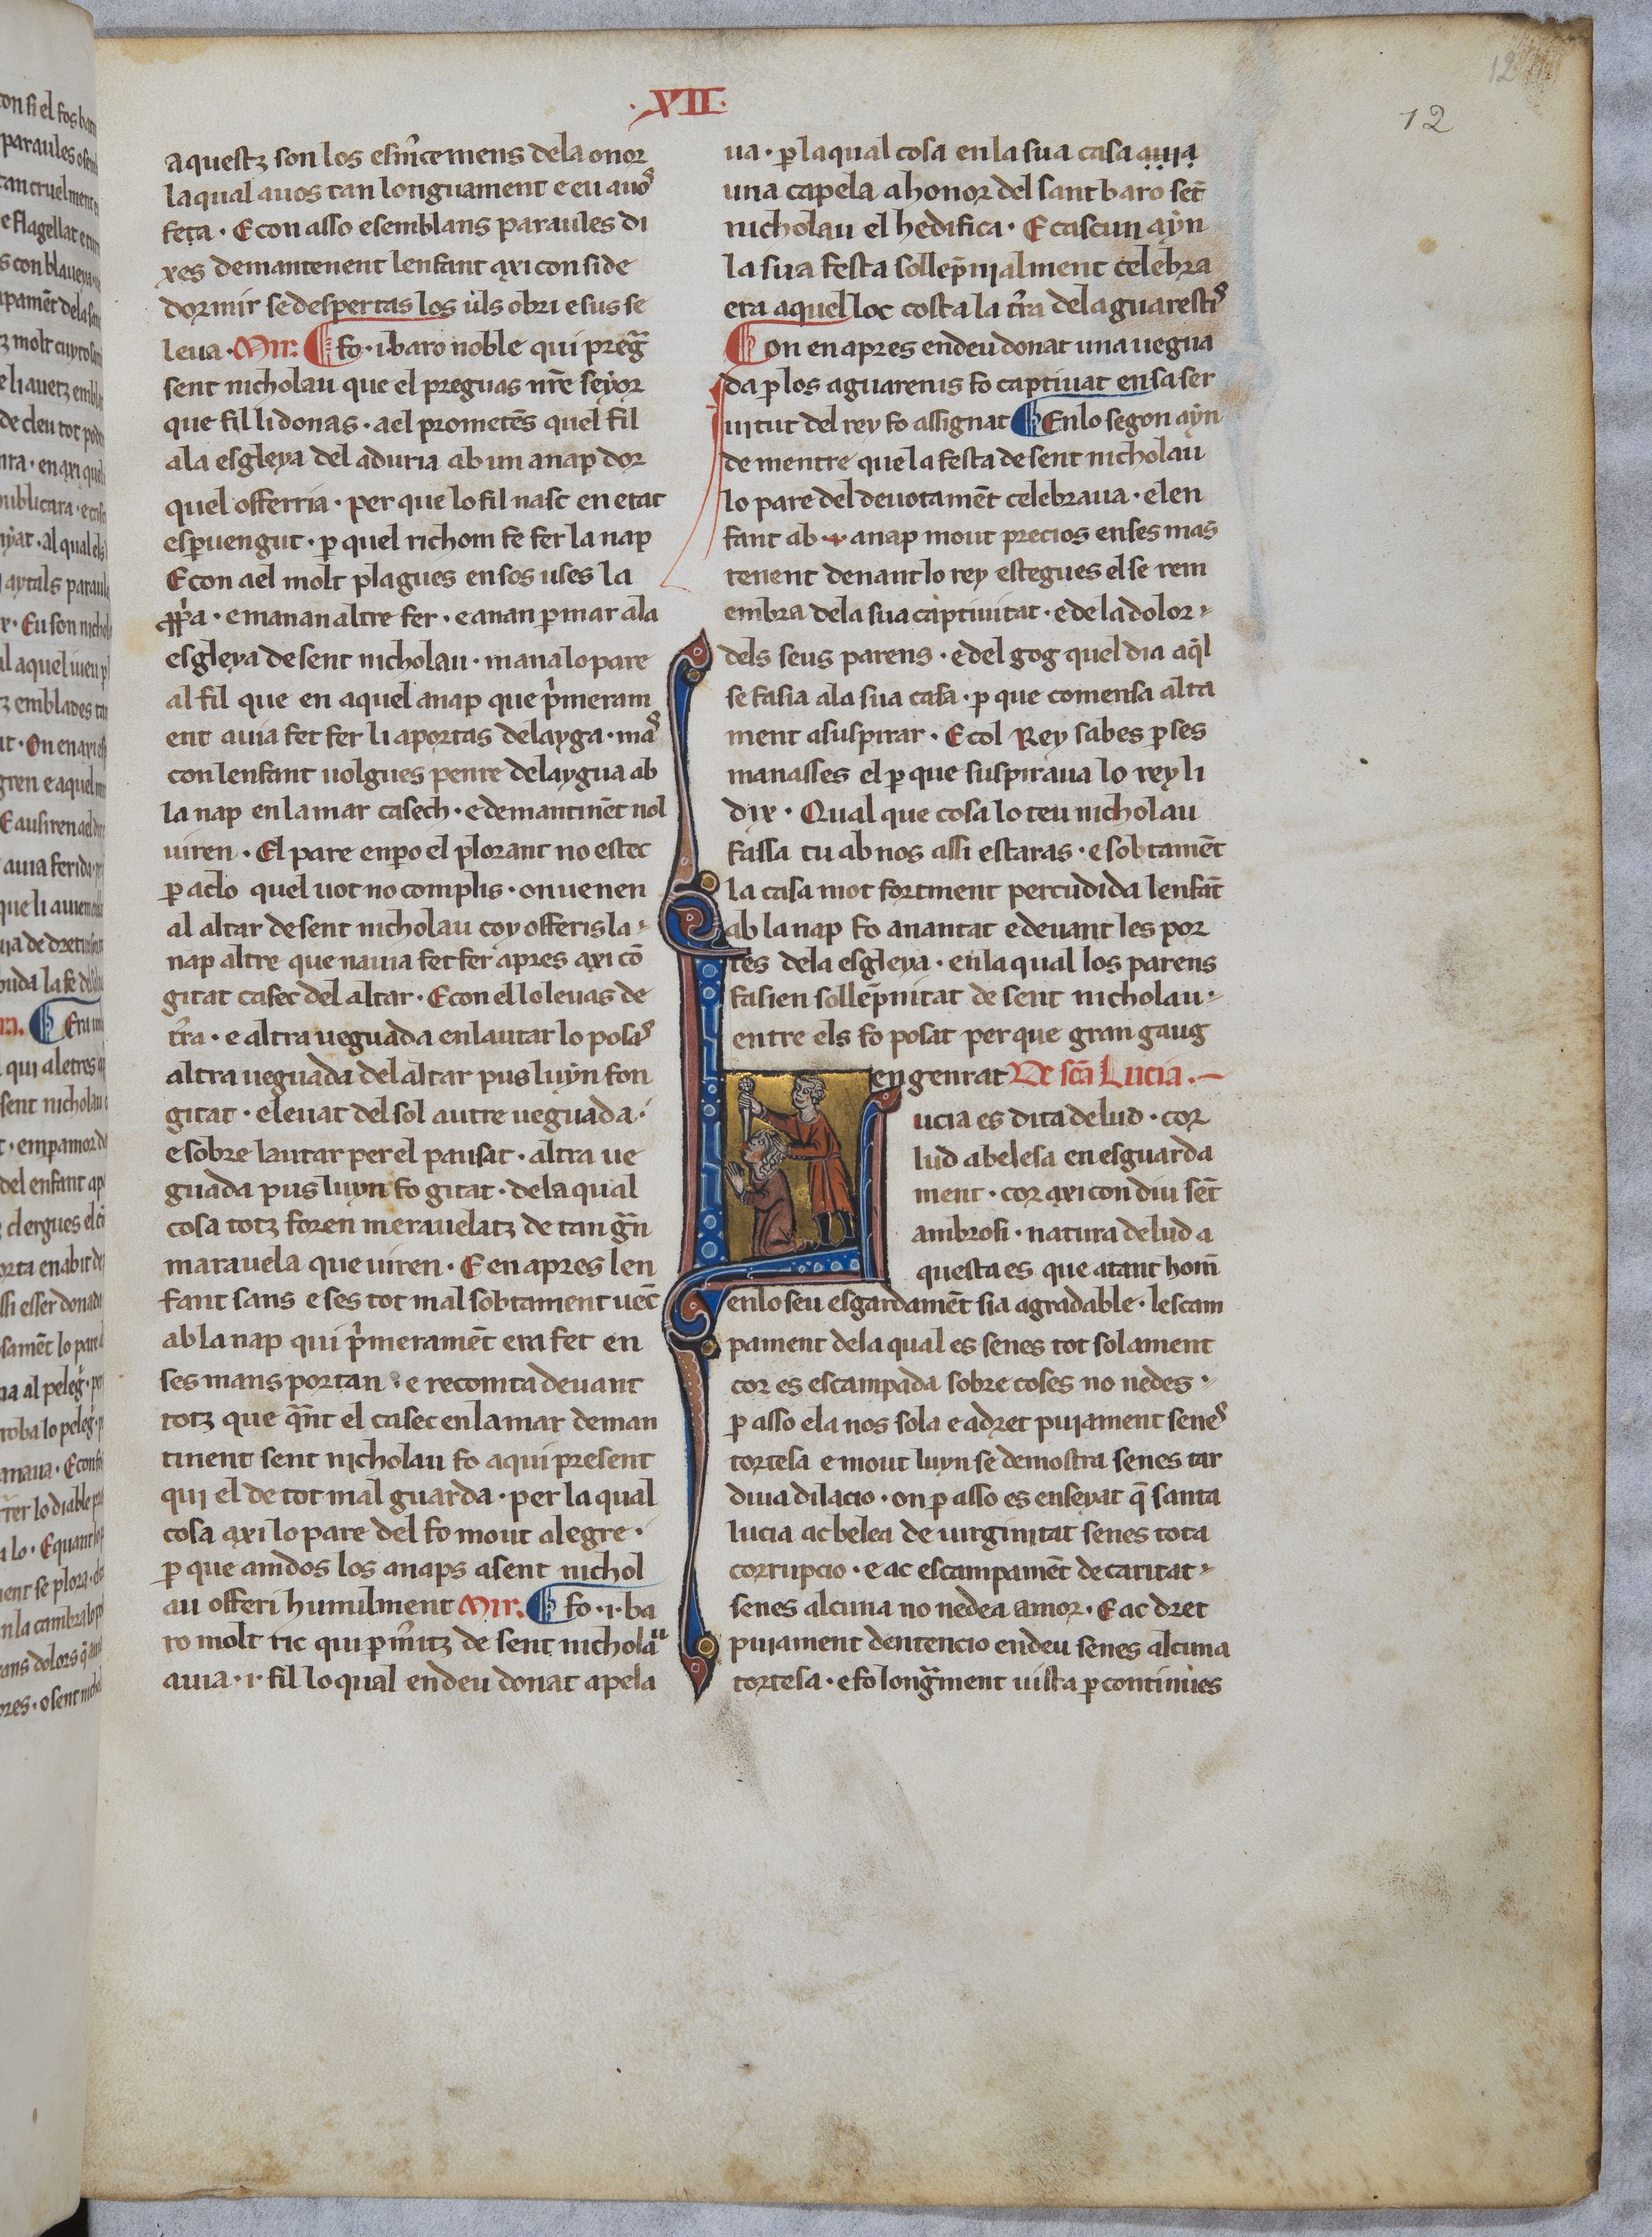 .XII.
12
12
aquestz son los esm̃cemens dela onor
laqual auos tan longuament e eu auoˢ
feta · E con asso esemblans paraules di
xes demantenent lenfant axi con side
dormir se despertas los uls obri e sus se
leua · Mir. fo · i · baro noble qui preg̃
sent nicholau que el preguas nr̃e seyor
que fil li donas · a el prometẽs quel fil
ala esgleya del aduria ab un anap dor
quel offerria · per que lo fil nasc en etat
es puengut · p quel richom fe fer la nap
E con a el molt plagues en sos uses la
· e manan altre fer · e anan p mar ala
esgleya de sent nicholau · mana lo pare
al fil que en aquel anap que p̃meram
ent auia fet fer li aportas delayga · maˢ
con lenfant uolgues penre delaygua ab
la nap en la mar casech · e demantinẽt nol
uiren · El pare enpo el plorant no estec
p aclo quel uot no complis · on uenen
al altar de sent nicholau coy offeris la
nap altre que nauia fet fer apres axi cõ
gitat casec del altar · E con el lo leuas de
tr̃a · e altra ueguada en lautar lo posaˢ
altra ueguada del altar pus luyn fon
gitat · e leuat del sol autre ueguada ·
e sobre lautar per el pausat · altra ue
guada pus luyn fo gitat · dela qual
cosa totz foren merauelatz de tan gñ
marauela que uiren · E en apres len
fant sans e ses tot mal sobtament uẽc
ab la nap qui p̃meramẽt era fet en
ses mans portan · e recomta deuant
totz que qñt el casec en la mar deman
tinent sent nicholau fo aqui present
qui el de tot mal guarda · per la qual
cosa axi lo pare del fo mout alegre ·
p que amdos los anaps a sent nichol
au offeri humilment Mir. fo · i · ba
ro molt ric qui p m̃itz de sent nicholau
auia · i · fil lo qual endeu donat apela
ua · p la qual cosa en la sua casa auia
una capela a honor del sant baro sẽt
nicholau el hedifica · E cascun ayn
la sua festa sollep̃nialment celebra
era aquel loc costa la tr̃a delaguarestiˢ
Con en apres endeu donat una uegua
da p los aguarenis fo captiuat en sa ser
uitut del rey fo assignat En lo segon ayn
de mentre que la festa de sent nicholau
lo pare del deuotamẽt celebraua · el en
fant ab anap mout precios en ses mas
tenent denant lo rey estegues el se rem
embra dela sua captiuitat · e de la dolor
dels seus parens · e del gog quel dia aq̃l
se fasia ala sua casa · p que comensa alta
ment a suspirar · E col Rey sabes p ses
manasses el p que suspiraua lo rey li
dix · Qual que cosa lo teu nicholau
fassa tu ab nos assi estaras · e sobtamẽt
la casa mot fortment percudida lenfãt
ab la nap fo anantat e deuant les por
tes dela esgleya · en la qual los parens
fasien sollep̃nitat de sent nicholau ·
entre els fo posat per que gran gaug
en genrat De sc̃a Lucia .
ucia es dita de lud · cor
lud a belesa en esguarda
ment · cor axi con diu sẽt
ambrosi · natura de lud a
questa es que atant hom̃
en lo seu esgardamẽt sia agradable · lescam
pament dela qual es senes tot solament
cor es escampada sobre coses no nedes ·
p asso ela nos sola e a dret puiament seneˢ
tortesa e mout luyn se demostra senes tar
diua dilacio · on p asso es enseyat q̃ santa
lucia ac belea de uirginitat senes tota
corrupcio · e ac escampamẽt de caritat
senes alcuna no nedea amor · E ac dret
puiament dentencio endeu senes alcuna
tortesa · e fo long̃ment uista p continues